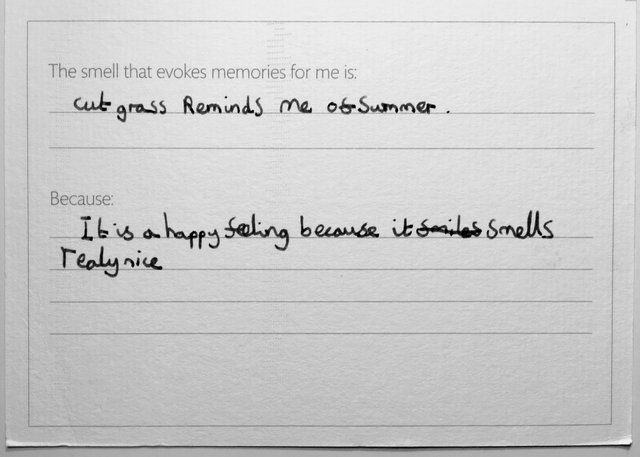 The smell that evokes memories for me is:
cut grass Reminds me of Summer.
Because:
It is a happy feeling because it smiles smells
realy nice